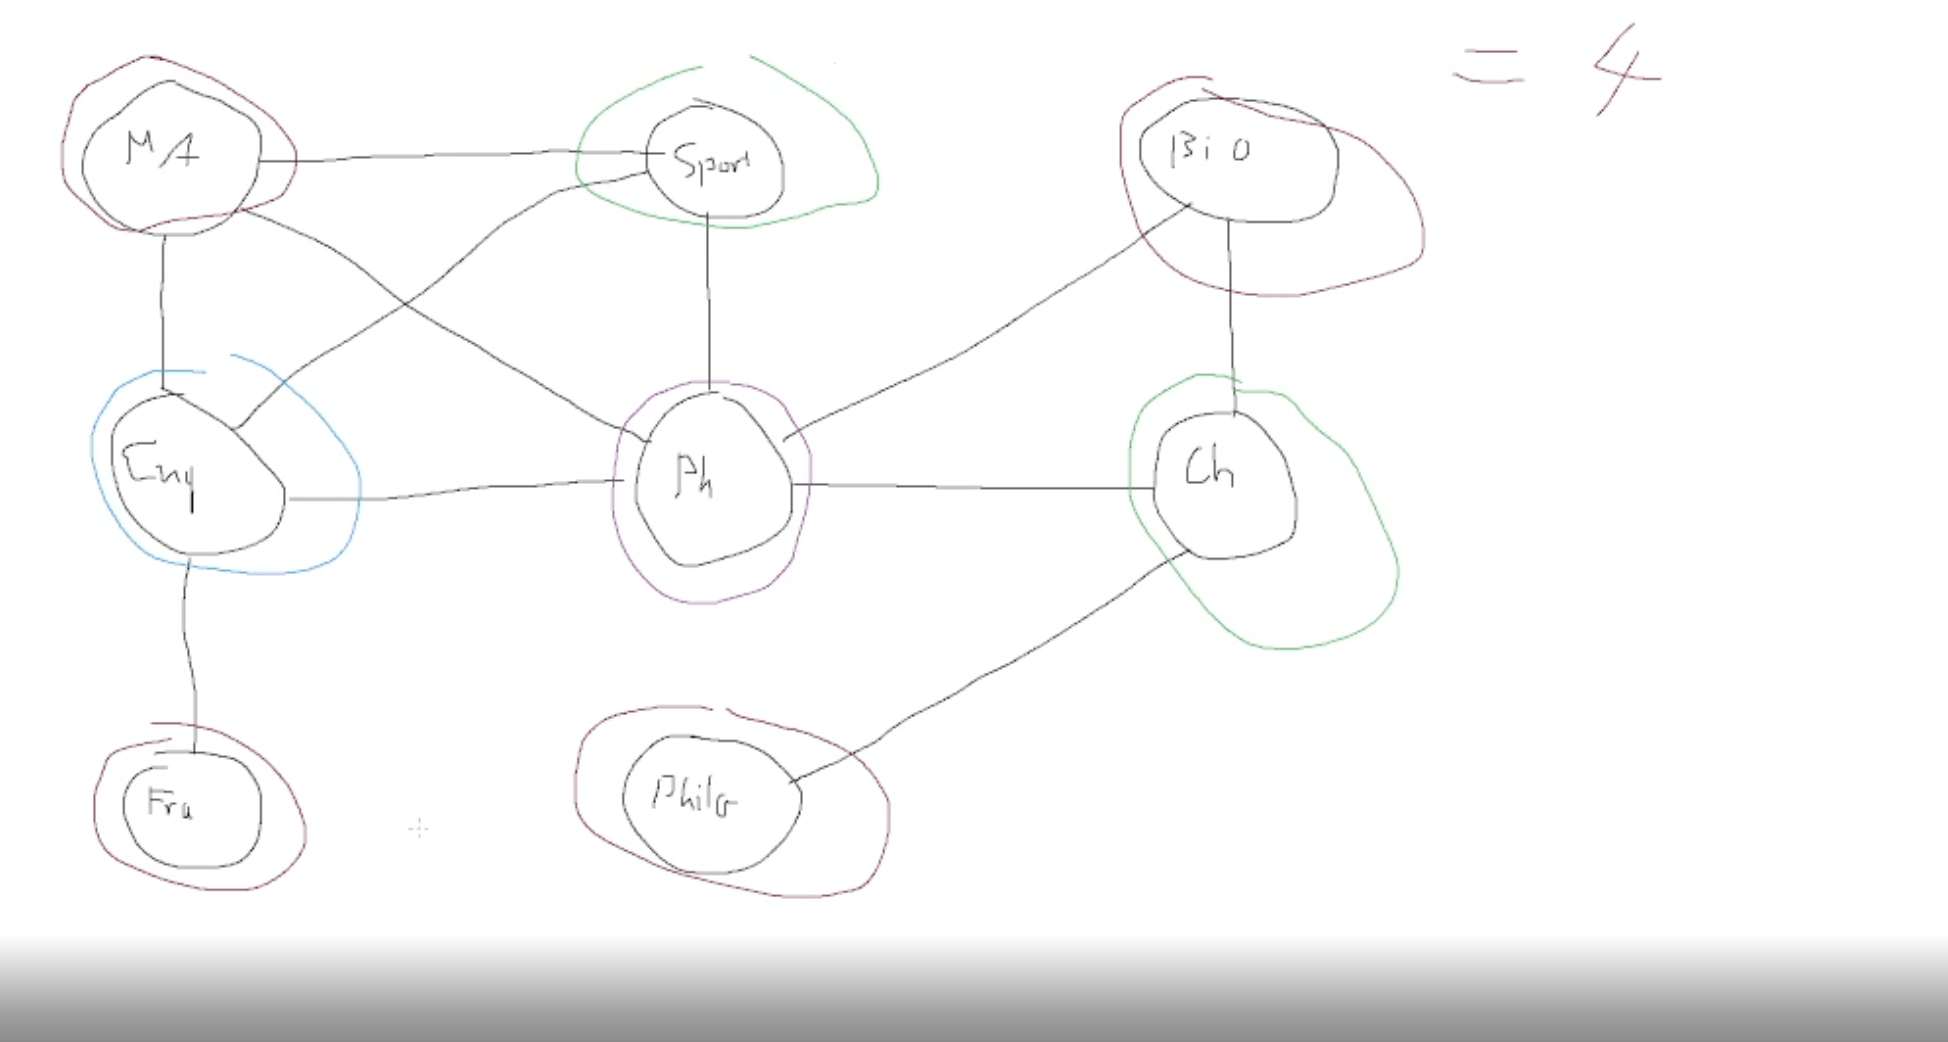 = 4
MA
Sport
Bio
Eng
Ph
Ch
Fra
Philo